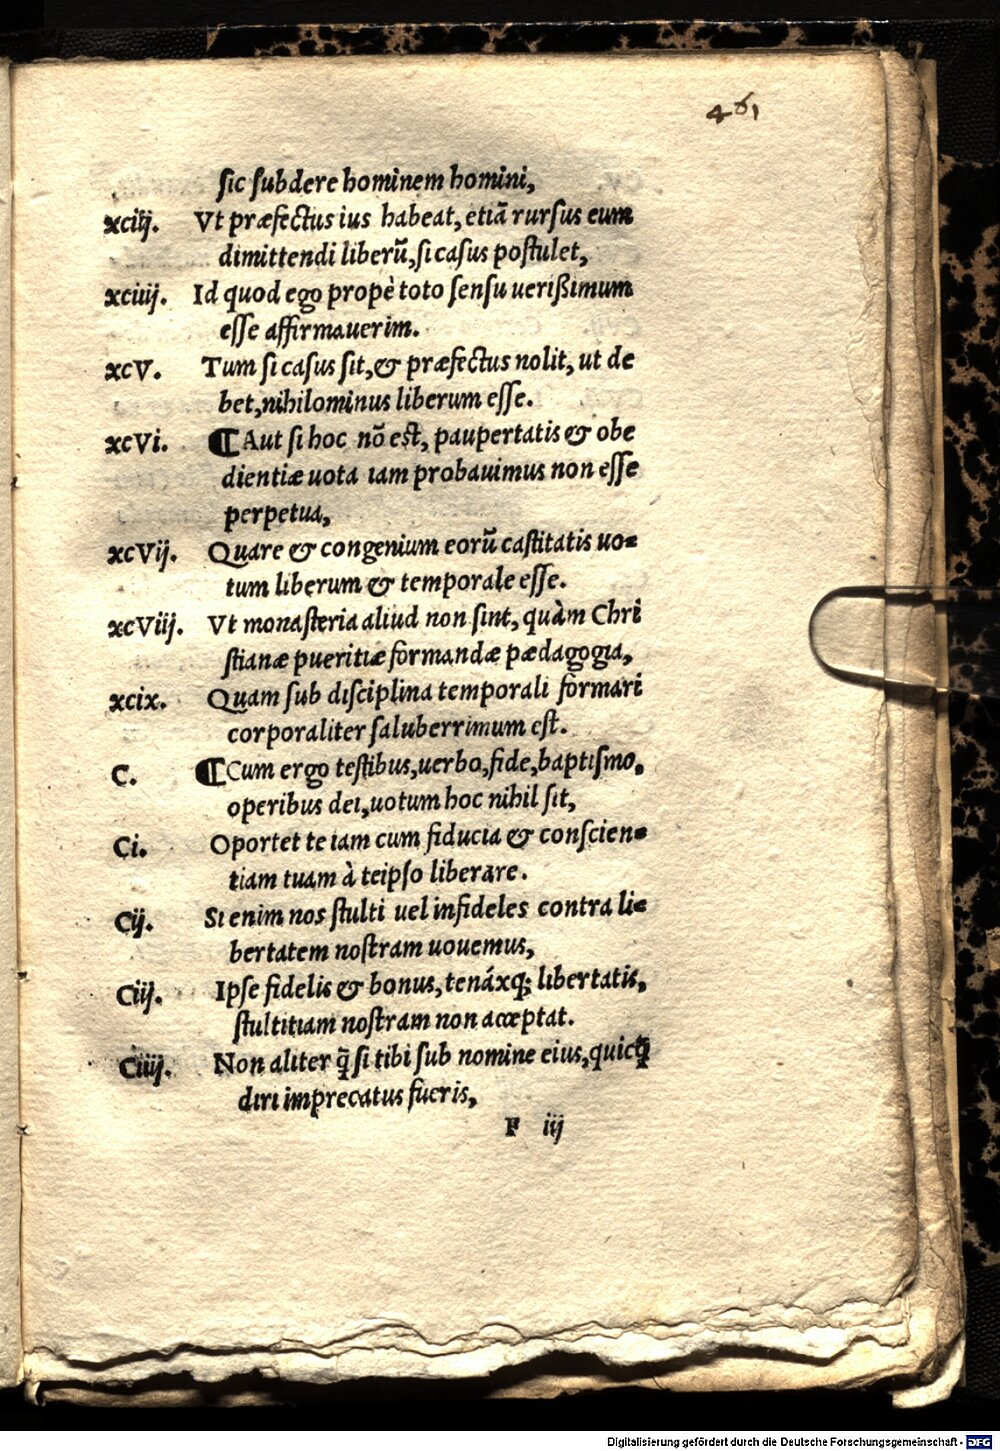 461
sic subdere hominem homini,
xciij. Vt præfectus ius habeat, etiã rursus eum
dimittendi liberũ, si casus postulet,
xciiij. Id quod ego propè toto sensu uerißimum
esse affirmauerim.
xcV. Tum si casus sit, & præfectus nolit, ut de
bet, nihilominus liberum esse.
xcVi. ¶ Aut si hoc nõ est, paupertatis & obe
dientiæ uota iam probauimus non esse
perpetua,
xcVij. Quare & congenium eorũ castitatis uo=
tum liberum & temporale esse.
xcViij. Vt monasteria aliud non sint, quàm Chri
stianæ pueritiæ formandæ pædagogia,
xcix. Quam sub disciplina temporali formari
corporaliter saluberrimum est.
C. ¶ Cum ergo testibus, uerbo, fide, baptismo,
operibus dei, uotum hoc nihil sit,
Ci. Oportet te iam cum fiducia & conscien=
tiam tuam à teipso liberare.
Cij. Si enim nos stulti uel infideles contra li=
bertatem nostram uouemus,
Ciij. Ipse fidelis & bonus, tenáxq; libertatis,
stultitiam nostram non acceptat.
Ciiij. Non aliter q̃ si tibi sub nomine eius, quicq̃
diri imprecatus fueris,
F iij
Digitalisierung gefördert durch die Deutsche Forschungsgemeinschaft - DFG